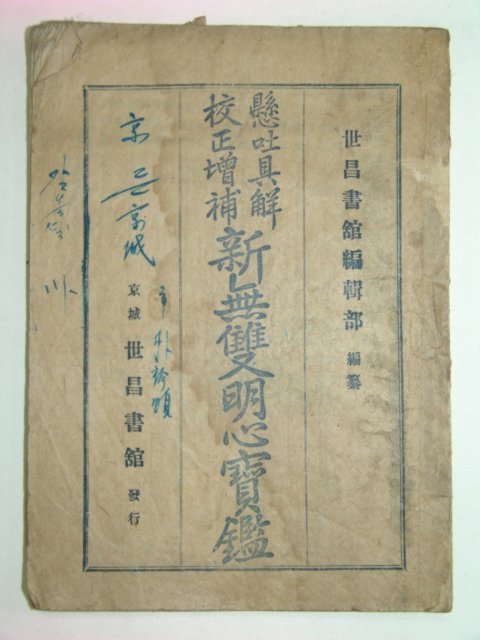 世昌書舘編輯部 編纂
懸吐具解
校正增補
新無雙明心寶鑑
京城 世昌書舘 發行
京
京城